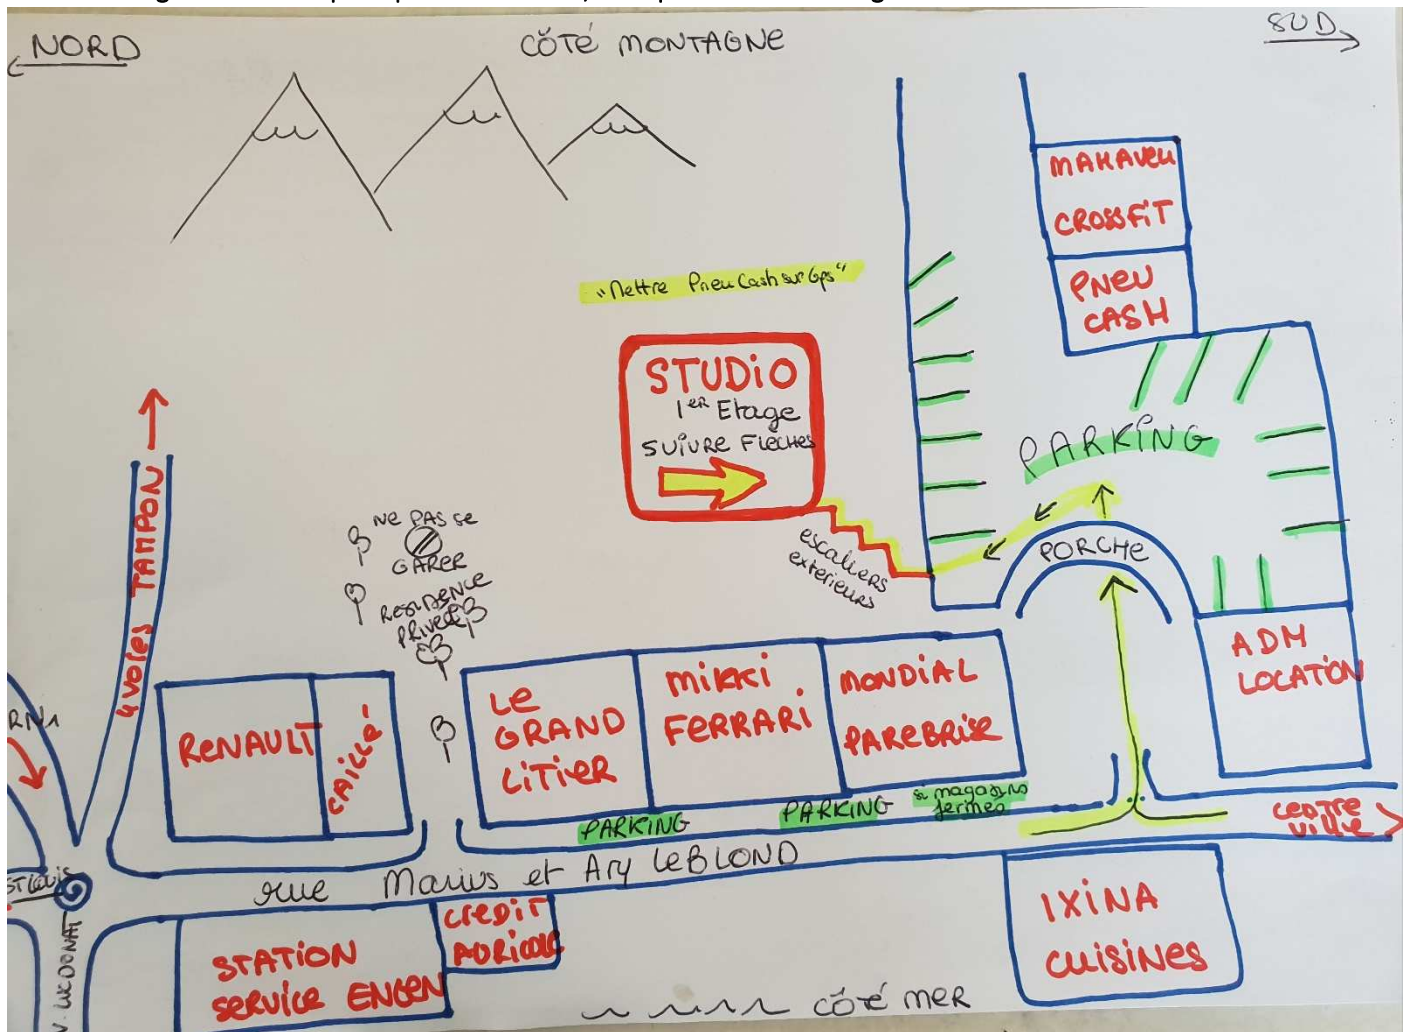 NORD
CÔTÉ MONTAGNE
SUD
MAKAVELI
CROSSFIT
PNEU
CASH
"Mettre Pneu Cash sur Gps"
STUDIO
1ER Etage
SUIVRE FLÈCHES
PARKING
PORCHE
escaliers
exterieurs
4 voies TAMPON
NE PAS SE
GARER
RESIDENCE
PRIVEE
RN1
RENAULT
CAILLE-
LE
GRAND
LITIER
MIKKI
FERRARI
MONDIAL
PAREBRISE
ADM
LOCATION
PARKING
PARKING
si magasins
fermés
CENTRE
VILLE
rue Marius et Ary LEBLOND
ST LOUIS
LUC DONAT
STATION
SERVICE ENGEN
CREDIT
AGRICOLE
IXINA
CUISINES
CÔTÉ MER